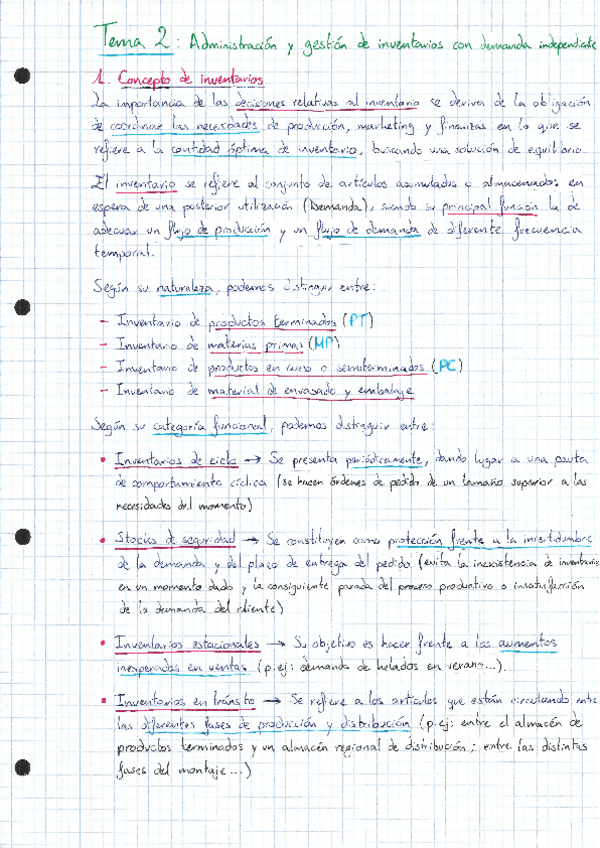 Tema 2: Administración y gestión de inventarios con demanda independiente
1. Concepto de inventarios
La importancia de las decisiones relativas al inventario se deriva de la obligación
de coordinar las necesidades de producción, marketing y finanzas en lo que se
refiere a la cantidad óptima de inventario, buscando una solución de equilibrio.
El inventario se refiere al conjunto de artículos acumulados o almacenados en
espera de una posterior utilización (Demanda), siendo su principal función la de
adecuar un flujo de producción y un flujo de demanda de diferente frecuencia
temporal.
Según su naturaleza, podemos distinguir entre:
- Inventario de productos terminados (PT)
- Inventario de materias primas (MP)
- Inventario de productos en curso o semiterminados (PC)
- Inventario de material de envasado y embalaje
Según su categoría funcional, podemos distinguir entre:
• Inventarios de ciclo → Se presenta periódicamente, dando lugar a una pauta
de comportamiento cíclica (se hacen órdenes de pedido de un tamaño superior a las
necesidades del momento)
• Stocks de seguridad → Se constituyen como protección frente a la incertidumbre
de la demanda y del plazo de entrega del pedido (evita la inexistencia de inventario
en un momento dado y la consiguiente parada del proceso productivo o insatisfacción
de la demanda del cliente)
• Inventarios estacionales → Su objetivo es hacer frente a los aumentos
inesperados en ventas (p.ej: demanda de helados en verano...).
• Inventarios en tránsito → Se refiere a los artículos que están circulando entre
las diferentes fases de producción y distribución (p.ej: entre el almacén de
productos terminados y un almacén regional de distribución; entre las distintas
fases del montaje...)